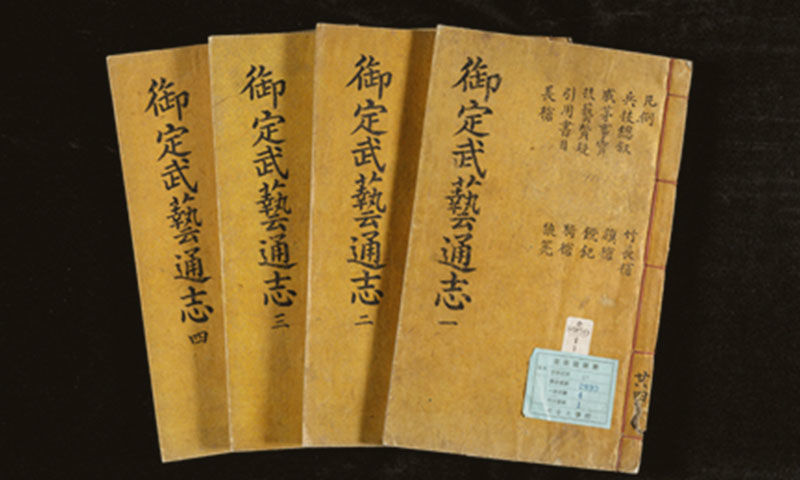 凡例
兵技總叙 竹長槍
戚茅事實 旗槍
技藝質疑 鎲鈀
引用書目 騎槍
長槍 狼筅
御定武藝通志 一
御定武藝通志 二
御定武藝通志 三
御定武藝通志 四